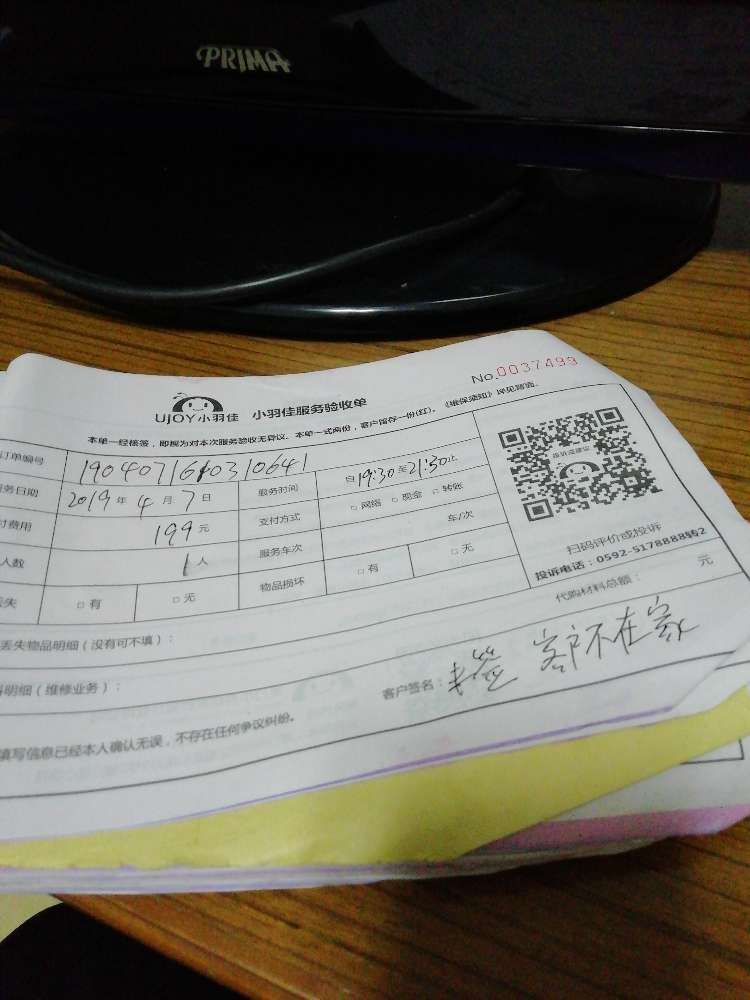 PRIMA
No.0037499
UJOY小羽佳 小羽佳服务验收单
本单一经核签，即视为对本次服务验收无异议。本单一式两份，客户留存一份(红)，《维保须知》详见背面。
订单编号
服务日期 2019年4月7日 服务时间 自19:30至21:30止
付费用 199元 支付方式 □网络 □现金 □转账
人数 1人 服务车次 车/次
丢失 □有 □无 物品损坏 □有 □无
投诉或建议
扫码评价或投诉
丢失物品明细（没有可不填）： 代购材料总额： 元
料明细（维修业务）： 客户签名： 未签 客户不在家
填写信息已经本人确认无误，不存在任何争议纠纷。